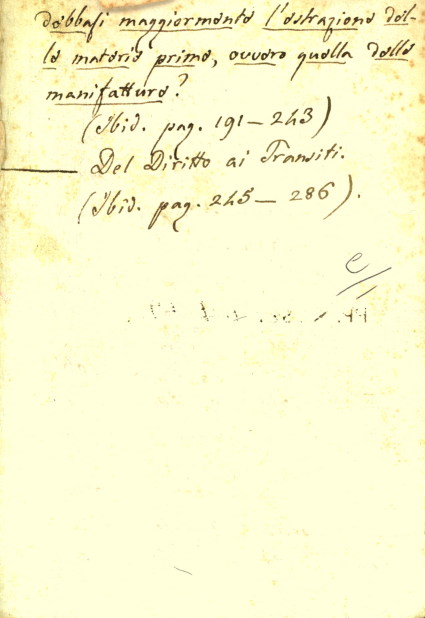 debbasi maggiormente l'estrazione del-
le materie prime, ovvero quella delle
manifatture?
(Ibid. pag. 191 – 243)
Del Diritto ai Transiti.
(Ibid. pag. 245 – 286).